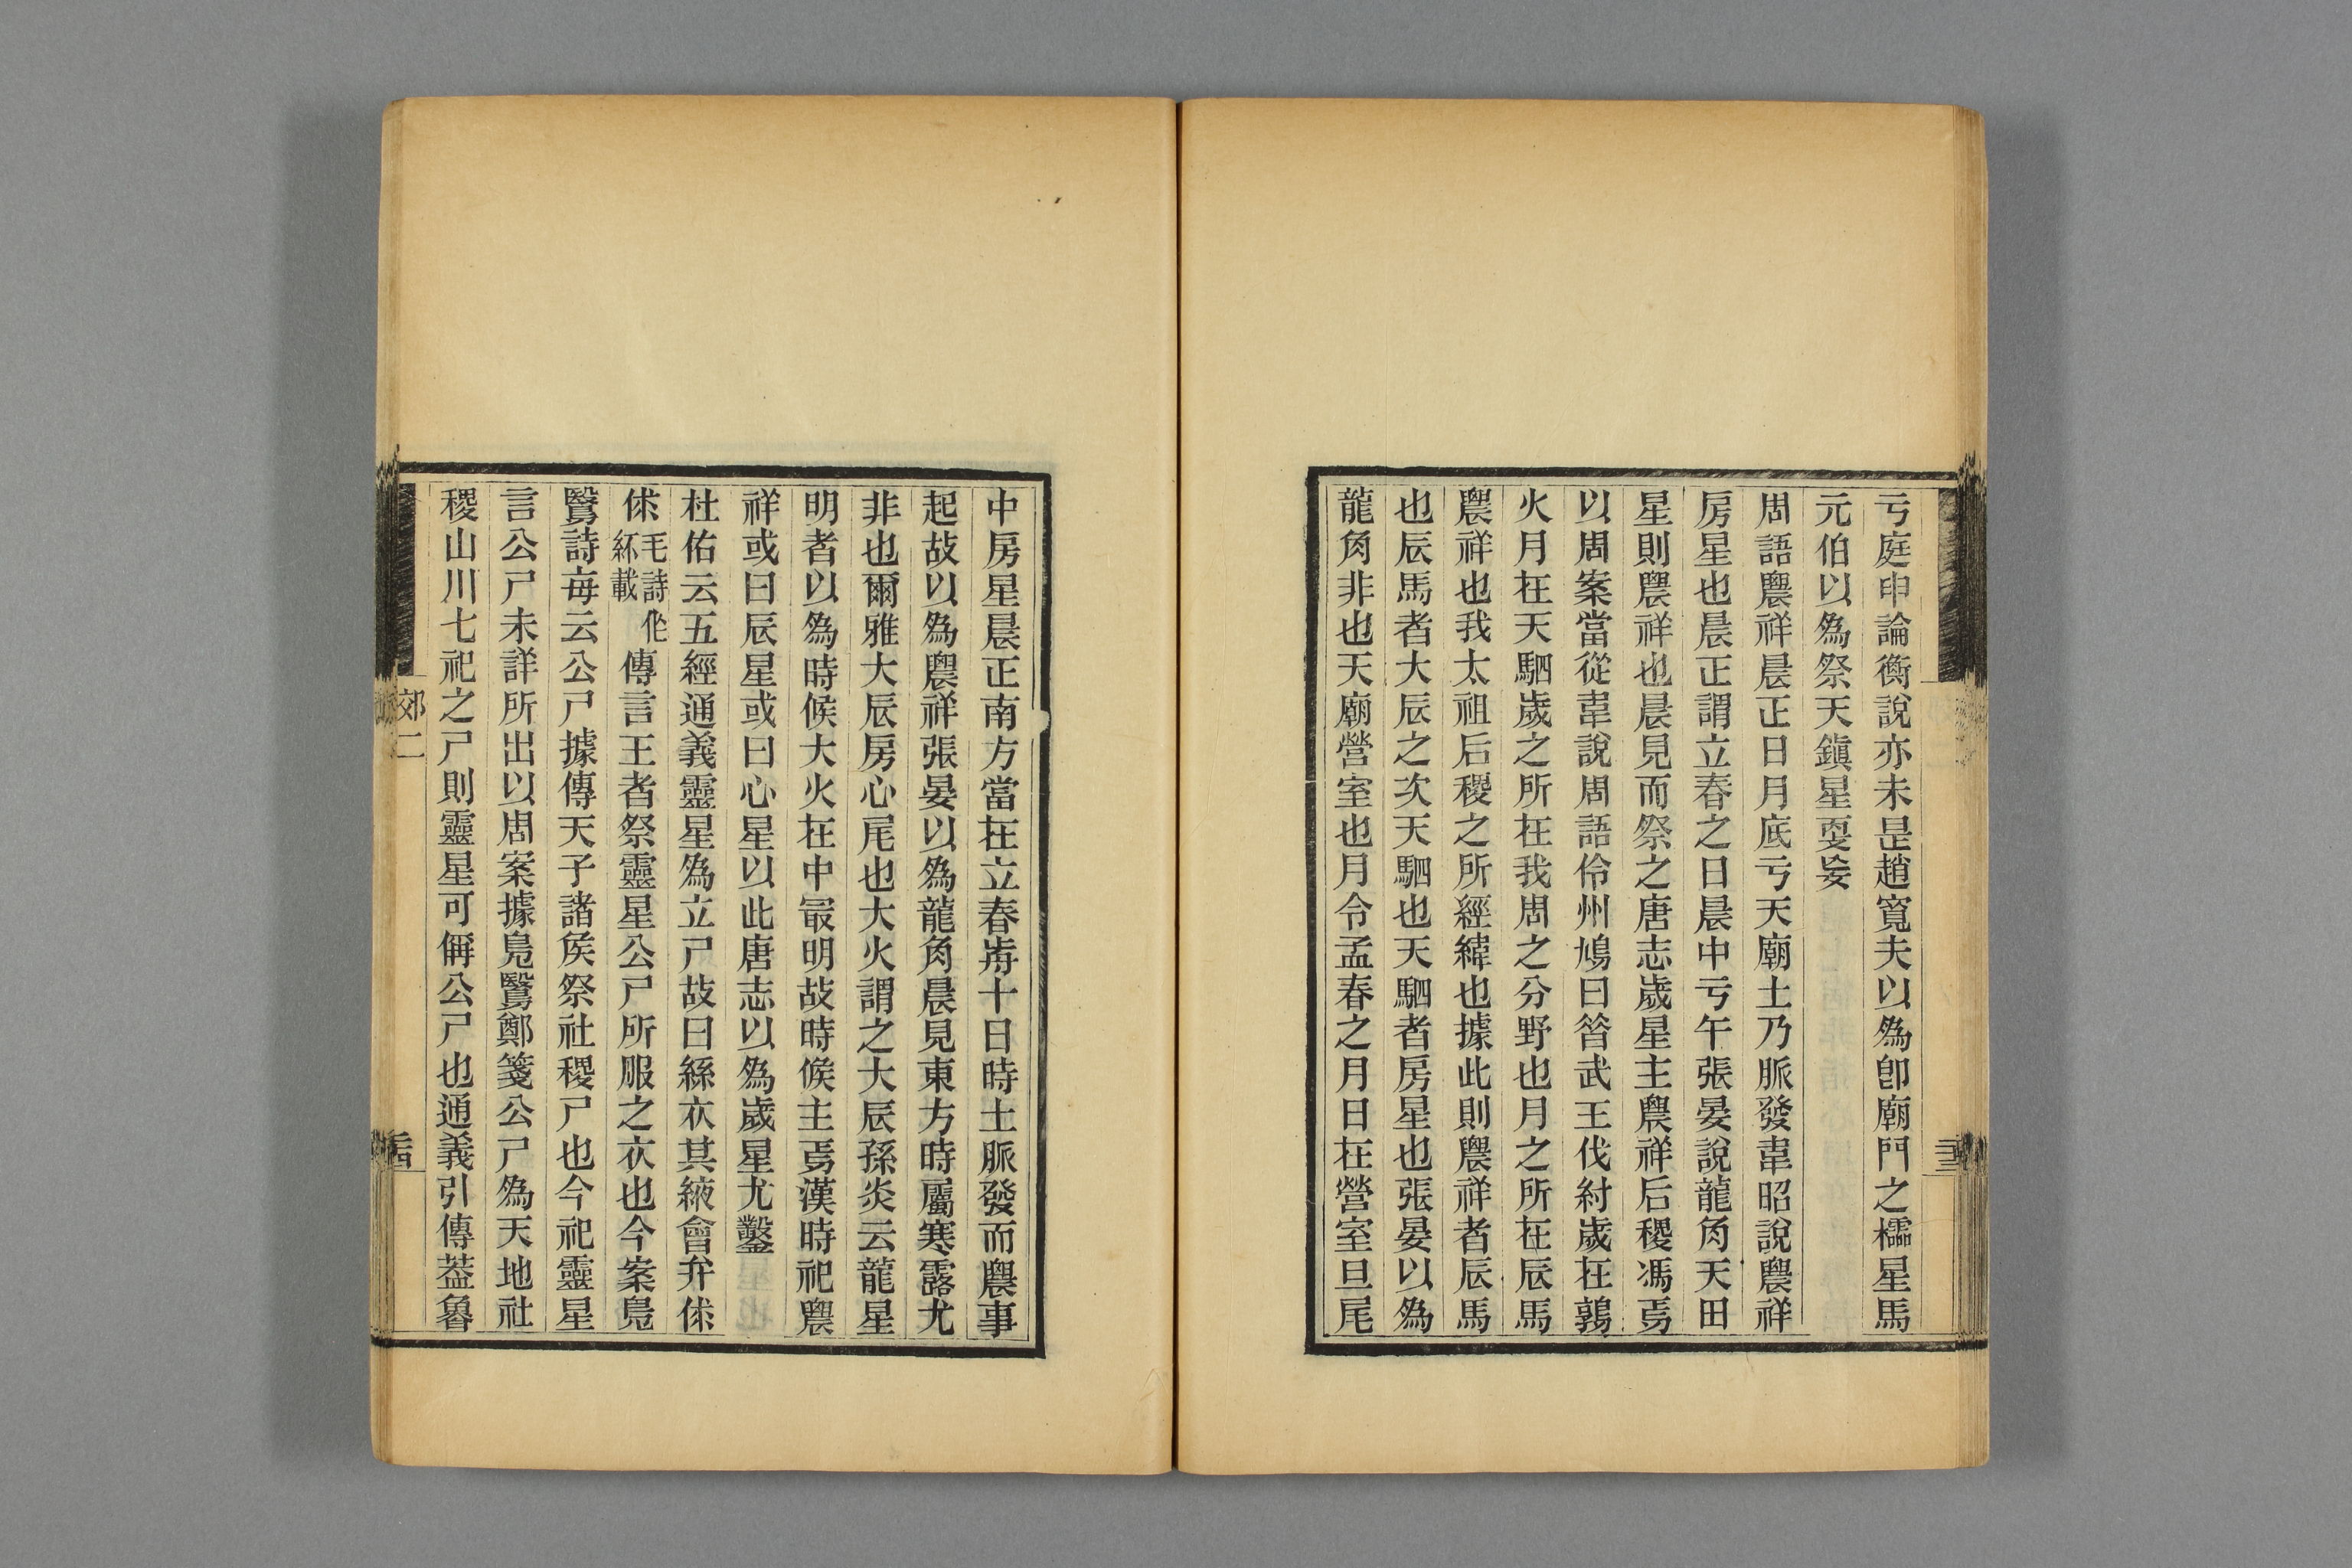 亏庭申論衡說亦未是趙寬夫以爲卽廟門之櫺星馬
元伯以爲祭天鎭星更妄
周語農祥晨正日月底亏天廟土乃脈發韋昭說農祥
房星也晨正謂立春之日晨中亏午張晏說龍角天田
星則農祥也晨見而祭之唐志歲星主農祥后稷馮焉
以周案當從韋說周語伶州鳩曰昝武王伐紂歲在鶉
火月在天駟歲之所在我周之分野也月之所在辰馬
農祥也我太祖后稷之所經緯也據此則農祥者辰馬
也辰馬者大辰之次天駟也天駟者房星也張晏以爲
龍角非也天廟營室也月令孟春之月日在營室旦尾
中房星晨正南方當在立春歬十日時土脈發而農事
起故以爲農祥張晏以爲龍角晨見東方時屬寒露尤
非也爾雅大辰房心尾也大火謂之大辰孫炎云龍星
明者以爲時候大火在中㝡明故時候主焉漢時祀農
祥或曰辰星或曰心星以此唐志以爲歲星尤鑿
杜佑云五經通義靈星爲立尸故曰絲衣其紑會弁俅
俅毛詩作紑載傳言王者祭靈星公尸所服之衣也今案鳧
鷖詩每云公尸據傳天子諸矦祭社稷尸也今祀靈星
言公尸未詳所出以周案據鳧鷖鄭箋公尸爲天地社
稷山川七祀之尸則靈星可偁公尸也通義引傳葢魯
郊二